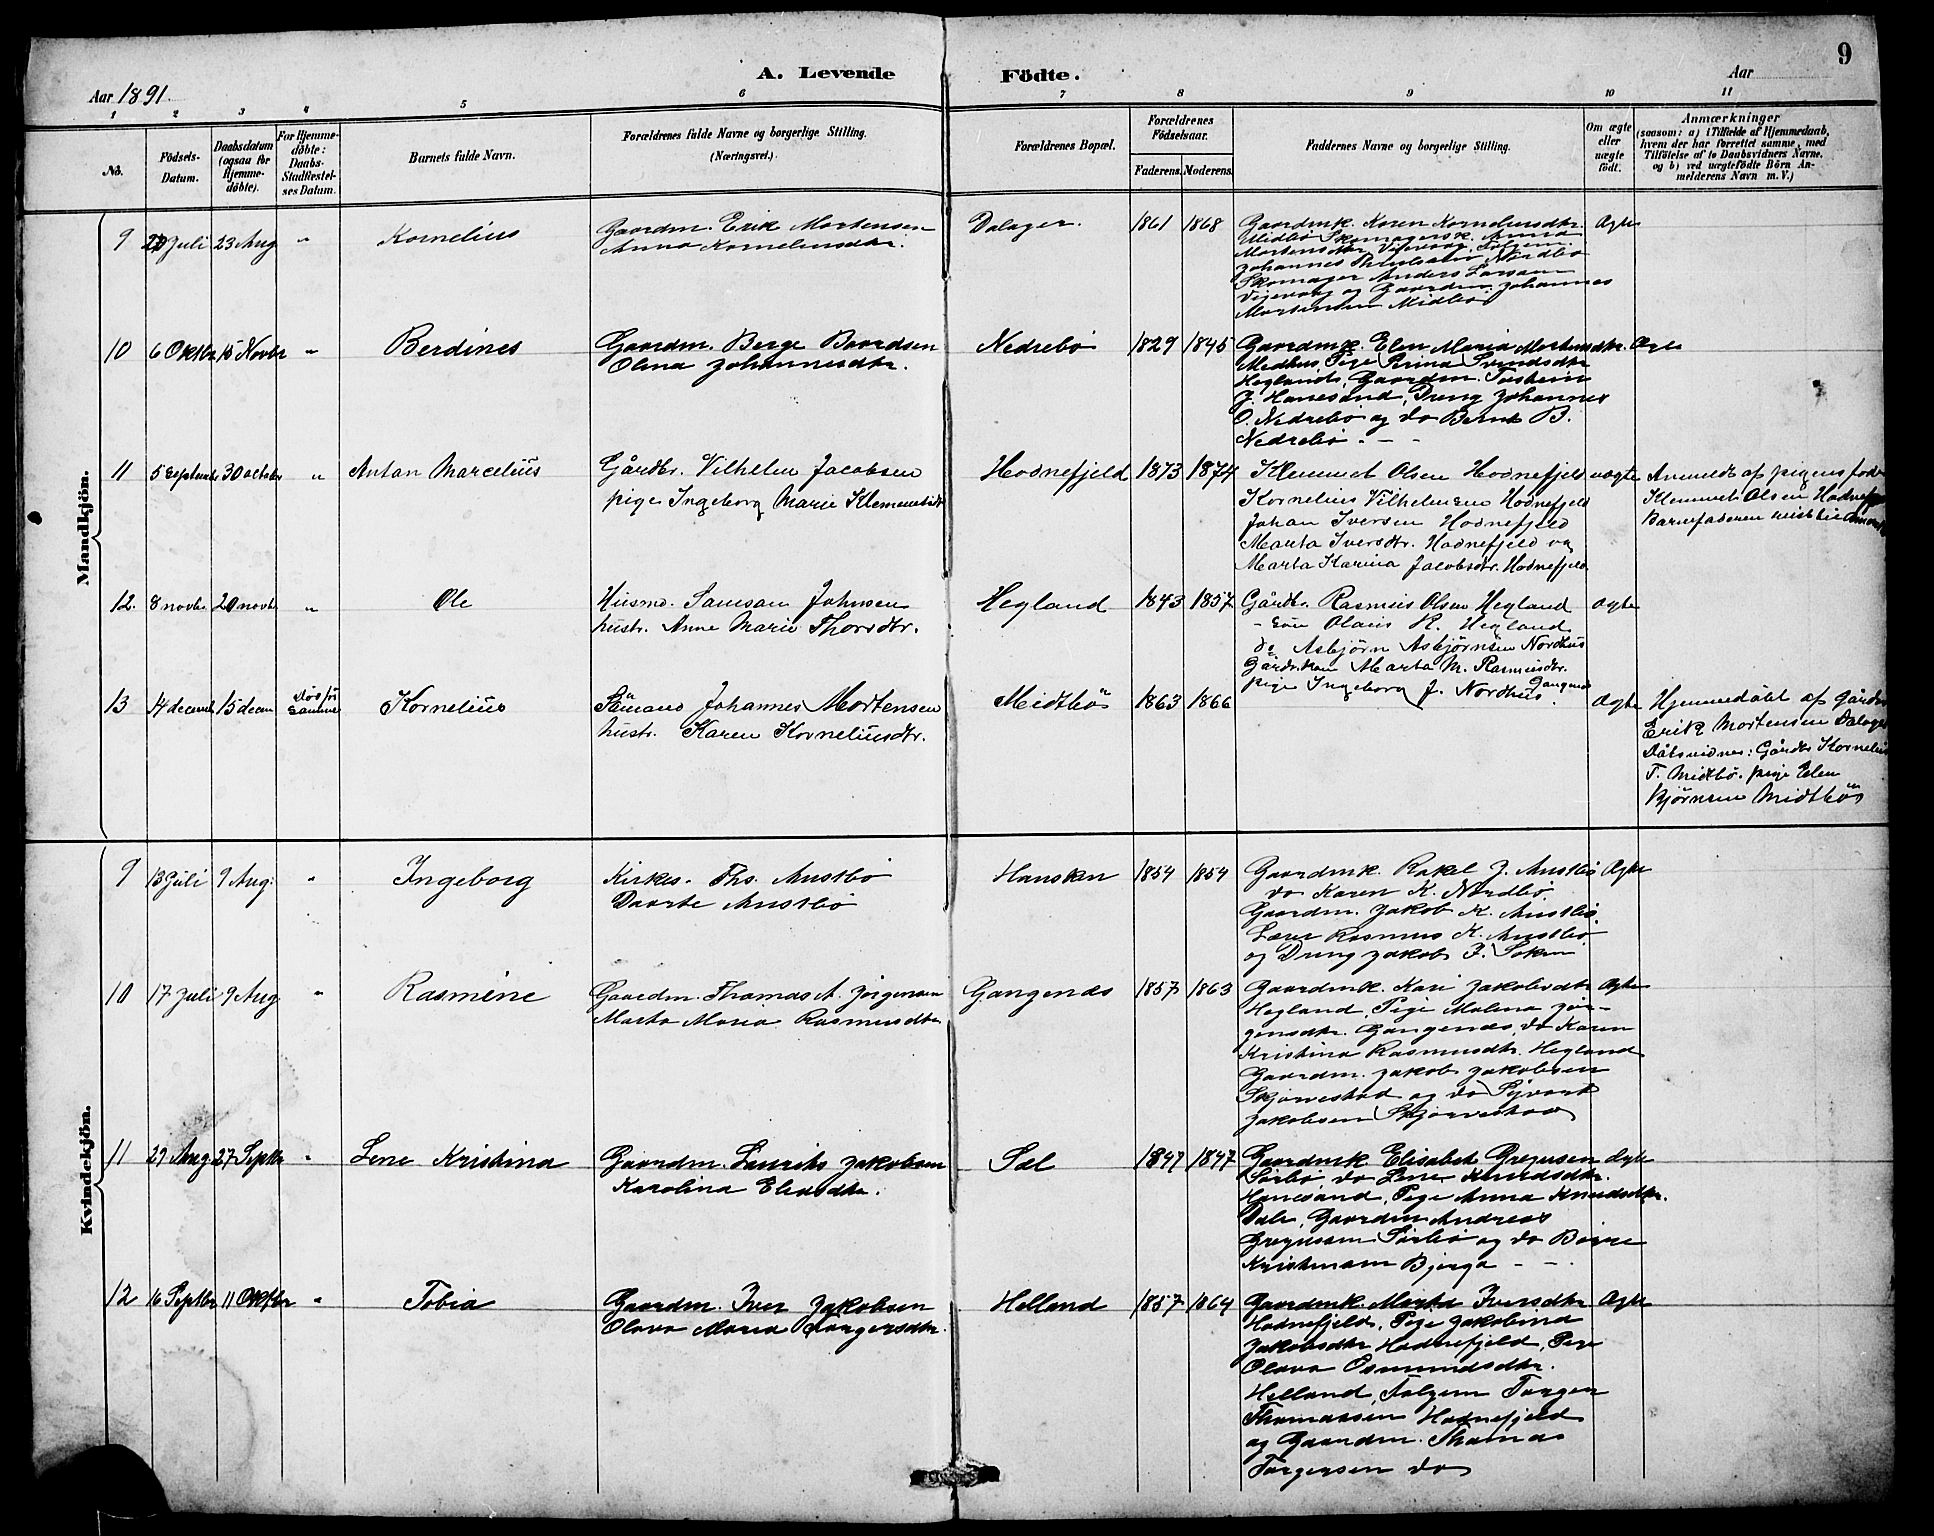 A. Levende Födte.
9
Aar 1891.
Aar
1 2 3 4 5 6 7 8 9 10 11
No.
Födsels-Datum.
Daabsdatum (ogsaa for Hjemmedöbte).
For Hjemmedöbte: Daabs-Stadfæstelses Datum.
Barnets fulde Navn.
Forældrenes fulde Navne og borgerlige Stilling. (Næringsvei.)
Forældrenes Bopæl.
Forældrenes Födselsaar.
Faderens. Moderens.
Faddernes Navne og borgerlige Stilling.
Om ægte eller uægte födt.
Anmærkninger
(saasom: a) i Tilfælde af Hjemmedaab, hvem der har forrettet samme, med Tilföielse af to Daabsvidners Navne, og b) ved uægtefödte Börn Anmelderens Navn m. V.)
Mandkjön.
9 20 Juli 23 Aug " Kornelius
Gaardm. Erik Mortensen
Anna Korneliusdtr.
Dalager. 1861 1868
Gaardmk. Karen Korneliusdtr.
Midbö Skomagersk. Anna
Mortensdtr.
Johannes Nordbö
Skomager Anders Larsen
og Gaardm. Johannes
Mortensen Midbö
Ægte
10 6 Oktbr 15 Novbr " Berdines
Gaardm. Berge Baardsen
Olena Johannesdtr.
Nedrebö 1829 1845
Gaardmk. Elen Maria Mortensdtr.
Medhus, Pige Svendsdtr
Heglands, Gaardm. Torstein
J. Hanesand, Dreng Johannes
O. Nedrebö og do Bernt B.
Nedrebö. - -
Ægte
11 5 September 30 october " Antan Marcelius
Gårdbr. Vilhelm Jacobsen
pige Ingeborg Marie Klemmetsdtr
Hodnefjeld 1873 1874
Klemmet Olsen Hodnefjeld
Kornelius Vilhelmsen Hodnefjeld
Johan Iversen Hodnefjeld
Marta Iversdtr. Hodnefjeld og
Marta Karina Jacobsdtr. Hodnefjeld.
uægte
Anmeldt af pigens fader
Klemmet Olsen Hodnefjeld
Barnefaderen
12. 8 novb. 20 novb. " Ole
Husmd. Samson Johnsen
hustr. Anne Marie Thorsdtr.
Hegland 1843 1857
Gårdbr. Rasmus Olsen Hegland
- Søn Olaus R. Hegland
do Asbjørn Asbjørnsen Nordhus
Gårdbr.kon Marta M. Rasmusdtr. Gangenæs
pige Ingeborg J. Nordhus.
ægte
13 14 decemb 15 decem Død før samme Kornelius
Sömand Johannes Mortensen
hustr. Karen Korneliusdtr.
Midtbö 1863 1866
Ægte
Hjemmedöbt af gårdbr
Erik Mortensen Dalager
Dåbsvidner: Gårdbr Kornelius
T. Midtbö. pige Elen
Bjørnsen Midtbö
Kvindekjön.
9 13 Juli 9 Aug: " Ingeborg
Kirkes. Ths. Austbö
Daarte Austbö
Hausken 1854 1854
Gaardmk. Rakel J. Austbö
do Karen K. Nordbö.
Gaardm. Jakob K. Austbö.
Lærer Rasmus K. Austbö
og Dreng Jakob J. Soken
Ægte
10 17 Juli 9 Aug " Rasmine
Gaardm. Thomas A. Jörgensen
Marta Maria Rasmusdtr
Gangenæs 1857 1863
Gaardmk. Kari Jakobsdtr
Hegland, Pige Malena Jör-
gensdtr. Gangenæs, do Karen
Kristina Rasmusdtr. Hegland
Gaardm. Jakob Jakobsen
Skjörvestad og do Sjvert
Jakobsen Skjörvestad
Ægte
11 29 Aug. 27 Septbr " Lene Kristina
Gaardm. Laurits Jakobsen
Karolina Eliasdtr.
Sæl 1847 1847
Gaardmk. Elisabet Gregusen
Sörbö do Lene Knudsdtr.
Hanesand, Pige Anna Knudsdtr.
Dale, Gaardm Andreas
Gregusen Sörbö og do Börre
Kristensen Bjerga - -.
Ægte
12 16 Septbr 11 Oktbr " Tobia
Gaardm. Iver Jakobsen
Olava Maria Torgersdtr.
Helland 1857 1864
Gaardmk. Marta Iversdtr
Hodnefjeld, Pige Jakobina
Jakobsdtr Hodnefjeld, Pige
Olava Osmundsdtr.
Helland, Torger
Thomassen Hodnefjeld
og Gaardm. Thomas
Torgersen do
Ægte